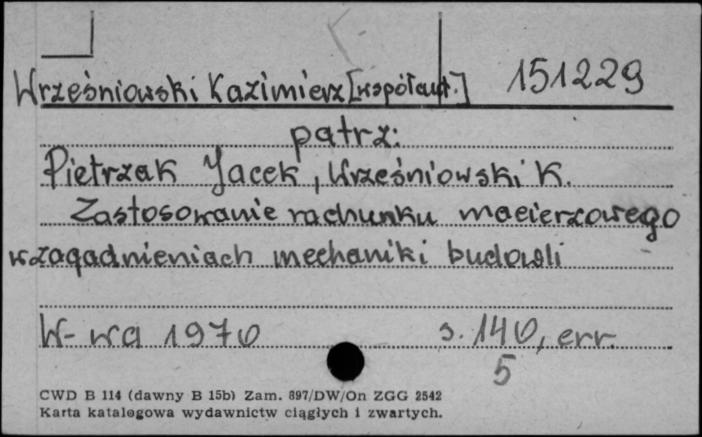 Wrześniowski Kazimierz [współaut.] 151229
patrz:
Pietrzak Jacek, Wrześniowski K.
Zastosowanie rachunku macierzowego
w zagadnieniach mechaniki budowli
W-wa 1970 s. 140, err.
5
CWD B 114 (dawny B 15b) Zam. 897/DW/On ZGG 2542
Karta katalogowa wydawnictw ciągłych i zwartych.